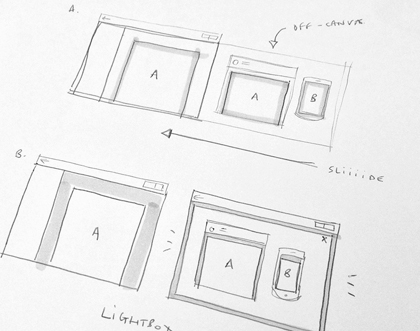 A.
OFF-CANVAS
A
A
B
SLIIIIDE
B.
A
X
A
B
LIGHTBOX